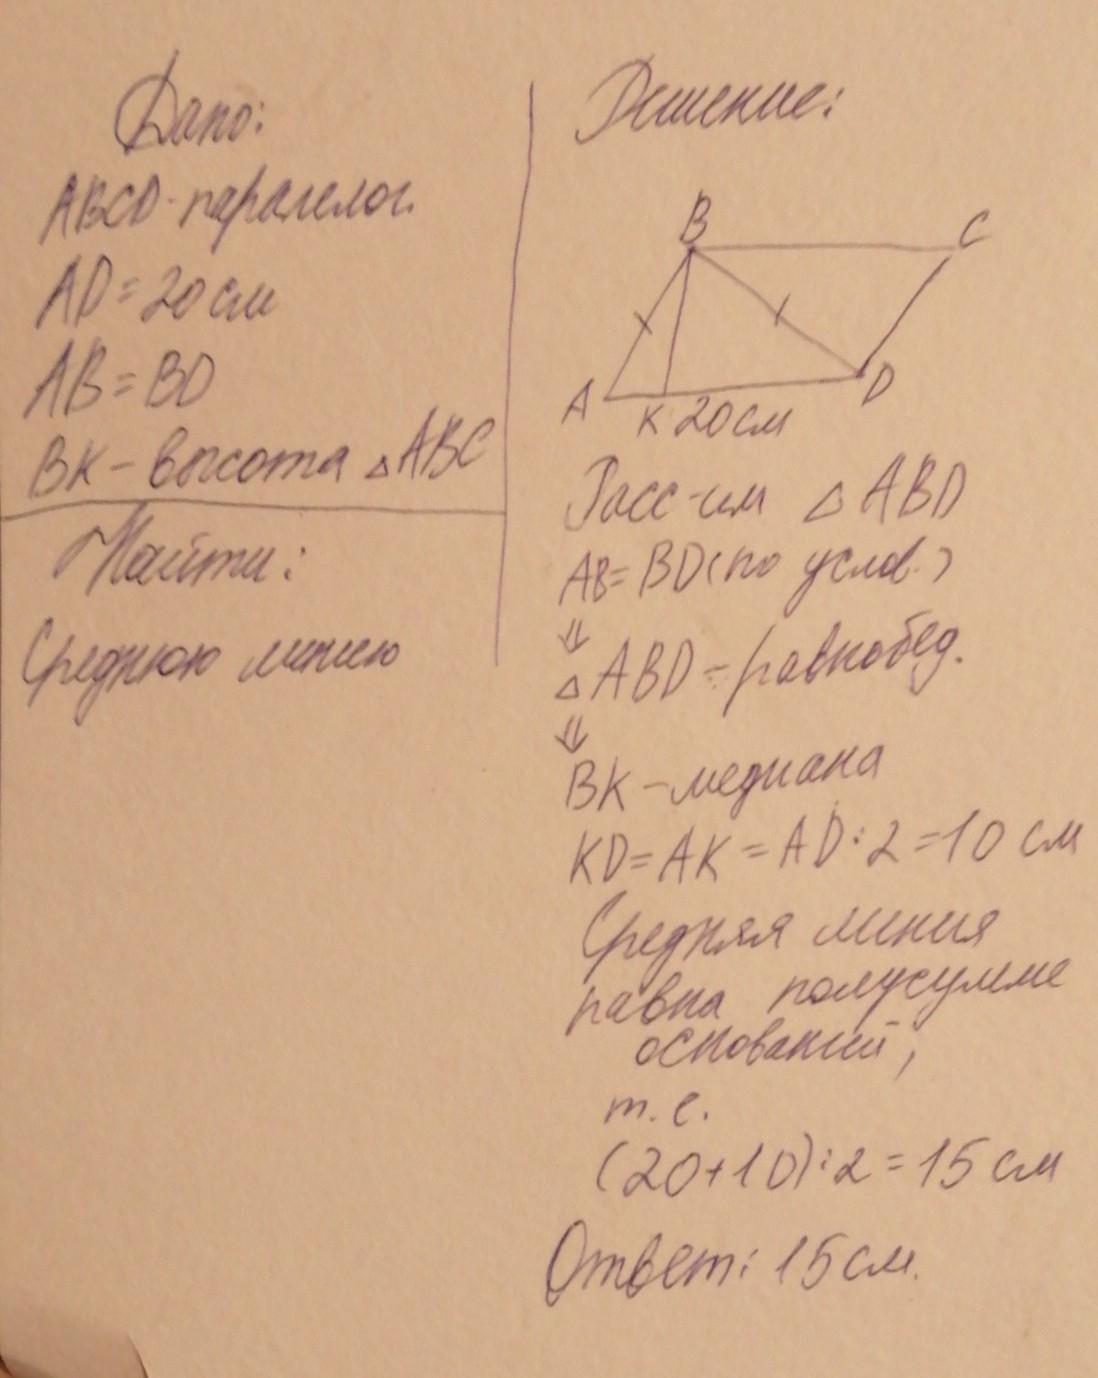 Дано:
ABCD-паралелог.
AD=20см
AB=BD
BK-высота △ABC
Найти:
Среднюю линию
Решение:
B
C
A
K
20см
D
Расс-им △ABD
AB=BD(по услов.)
⇓
△ABD-равнобед.
⇓
BK-медиана
KD=AK=AD:2=10 см
Средняя линия
равна полусумме
оснований,
т.е.
(20+10):2=15 см
Ответ: 15см.